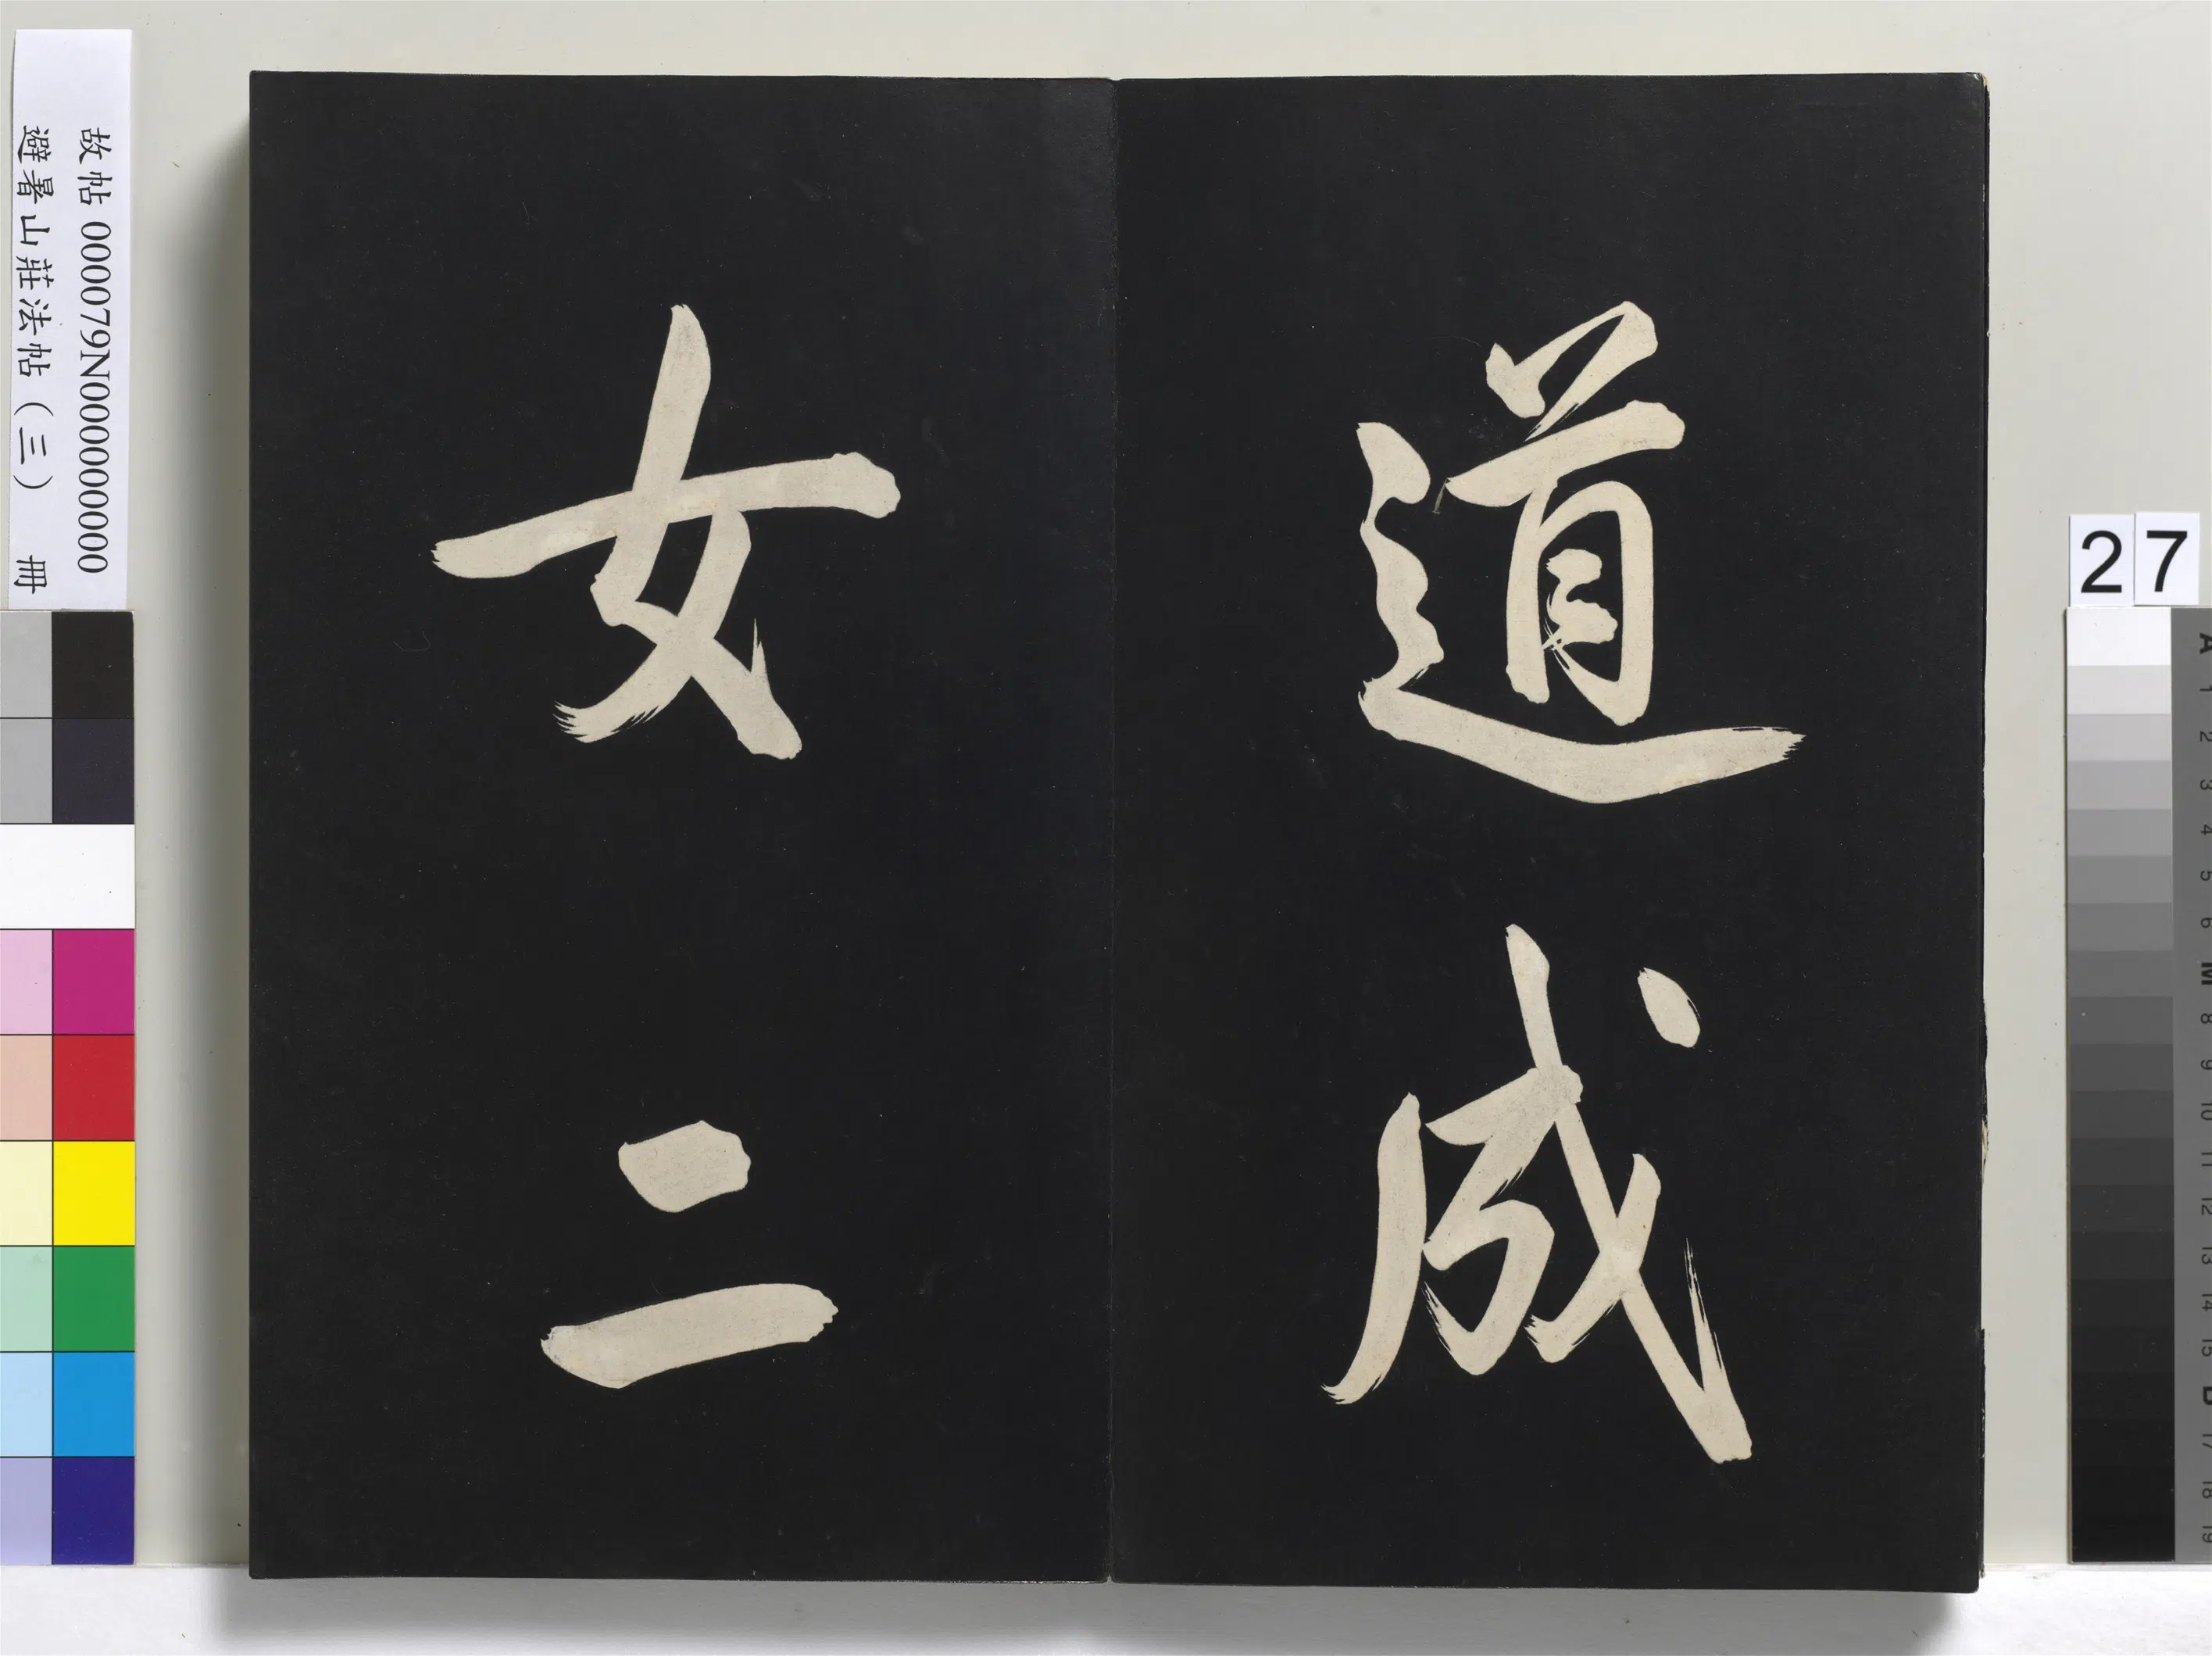 道成
女二
故帖 000079N000000000
避暑山莊法帖（三） 冊
27
A
1
2
3
4
5
6
M
8
9
10
11
12
13
14
15
B
17
18
19